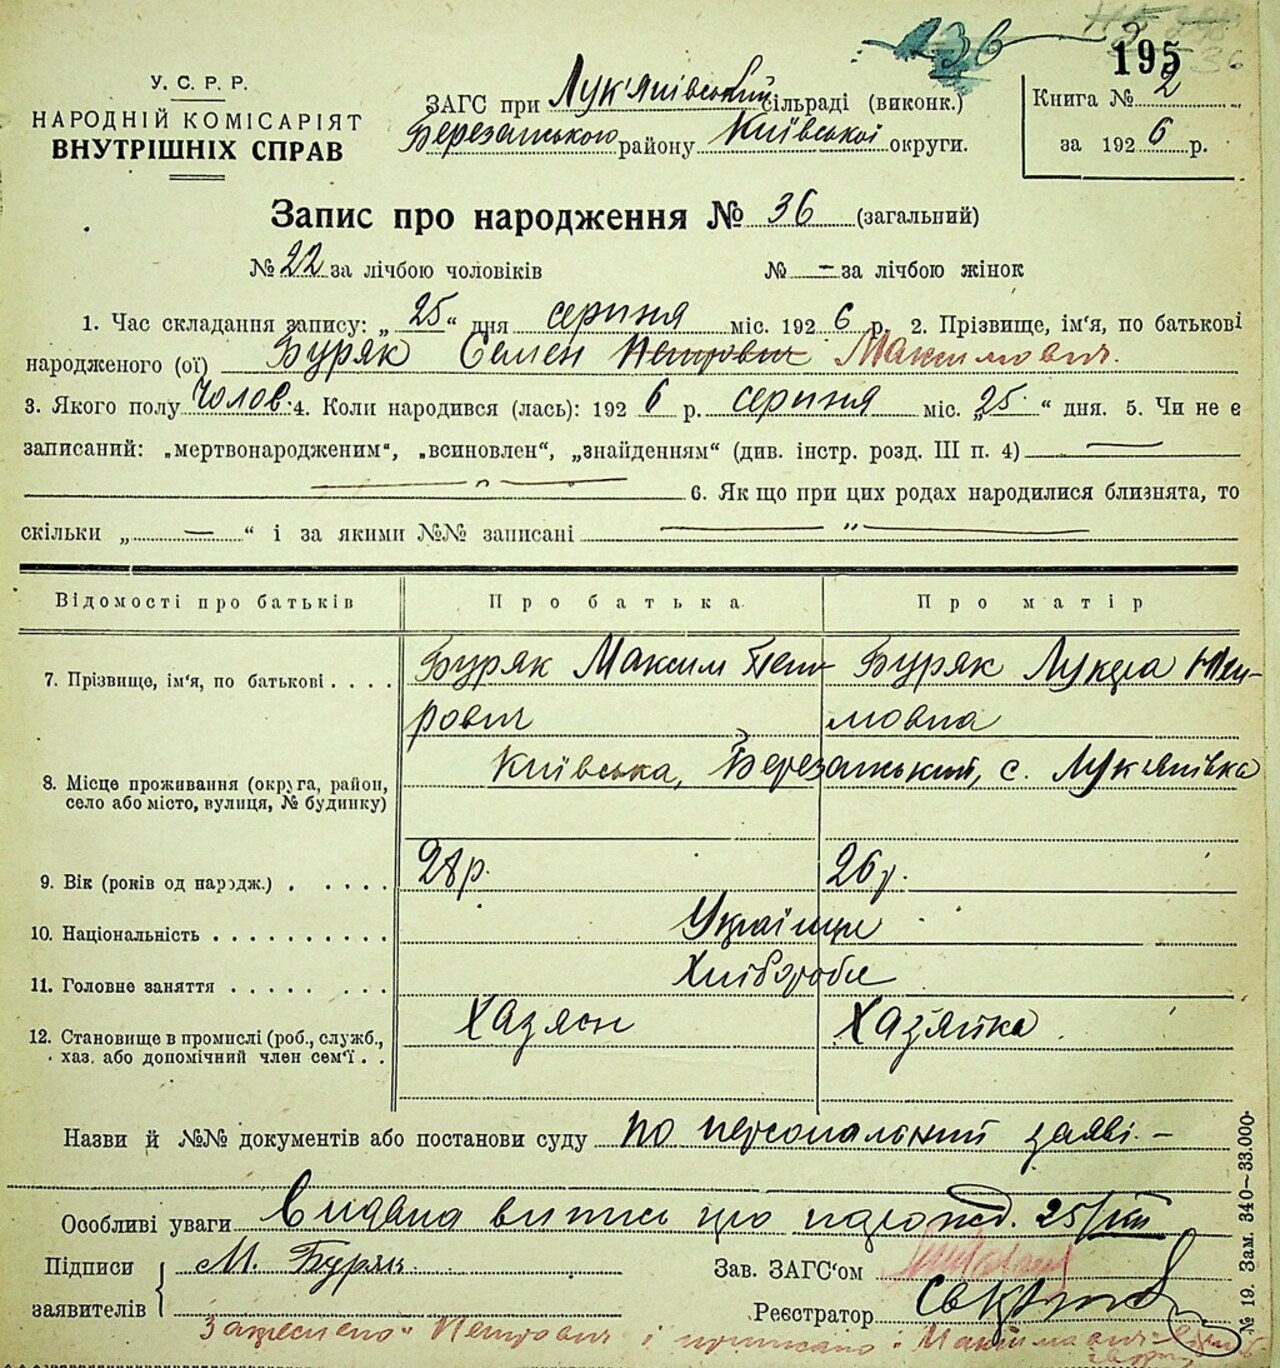 136
195
36
У. С. Р. Р.
НАРОДНІЙ КОМІСАРІЯТ
ВНУТРІШНІХ СПРАВ
ЗАГС при Лук'янівський сільраді (виконк.)
Березанського району Київської округи.
Книга № 2
за 1926 р.
Запис про народження № 36 (загальний)
№ 22 за лічбою чоловіків № — за лічбою жінок
1. Час складання запису: „25“ дня серпня міс. 1926 р. 2. Прізвище, ім'я, по батькові
народженого (ої) Буряк Семен Петрович Максимович.
3. Якого полу чолов. 4. Коли народився (лась): 1926 р. серпня міс. „25.“ дня. 5. Чи не є
записаний: „мертвонародженим“, „всиновлен“, „знайденням“ (див. інстр. розд. III п. 4) —
— „ — 6. Як що при цих родах народилися близнята, то
скільки „ — “ і за якими №№ записані — „ —
Відомості про батьків Про батька Про матір
7. Прізвище, ім'я, по батькові . . . . Буряк Максим Пет- Буряк Лукція
рович мовна
8. Місце проживання (округа, район, Київська, Березанський, с. Лукянівка
село або місто, вулиця, № будинку)
9. Вік (років од народж.) . . . . . 28 р. 26 р.
10. Національність . . . . . . . . . . Українці
11. Головне заняття . . . . . . . . Хлібороби
12. Становище в промислі (роб., службв., Хазяєн Хазяйка
хаз. або допомічний член сем'ї . .
Назви й №№ документів або постанови суду по персональний заяві. —
Особливі уваги Видана випись про народж. 25/VIII
Підписи М. Буряк
заявителів
Зав. ЗАГС'ом
Реєстратор
Закреслено „Петрович“ і приписано „Максимович“
№ 19. Зам. 340—33.000.